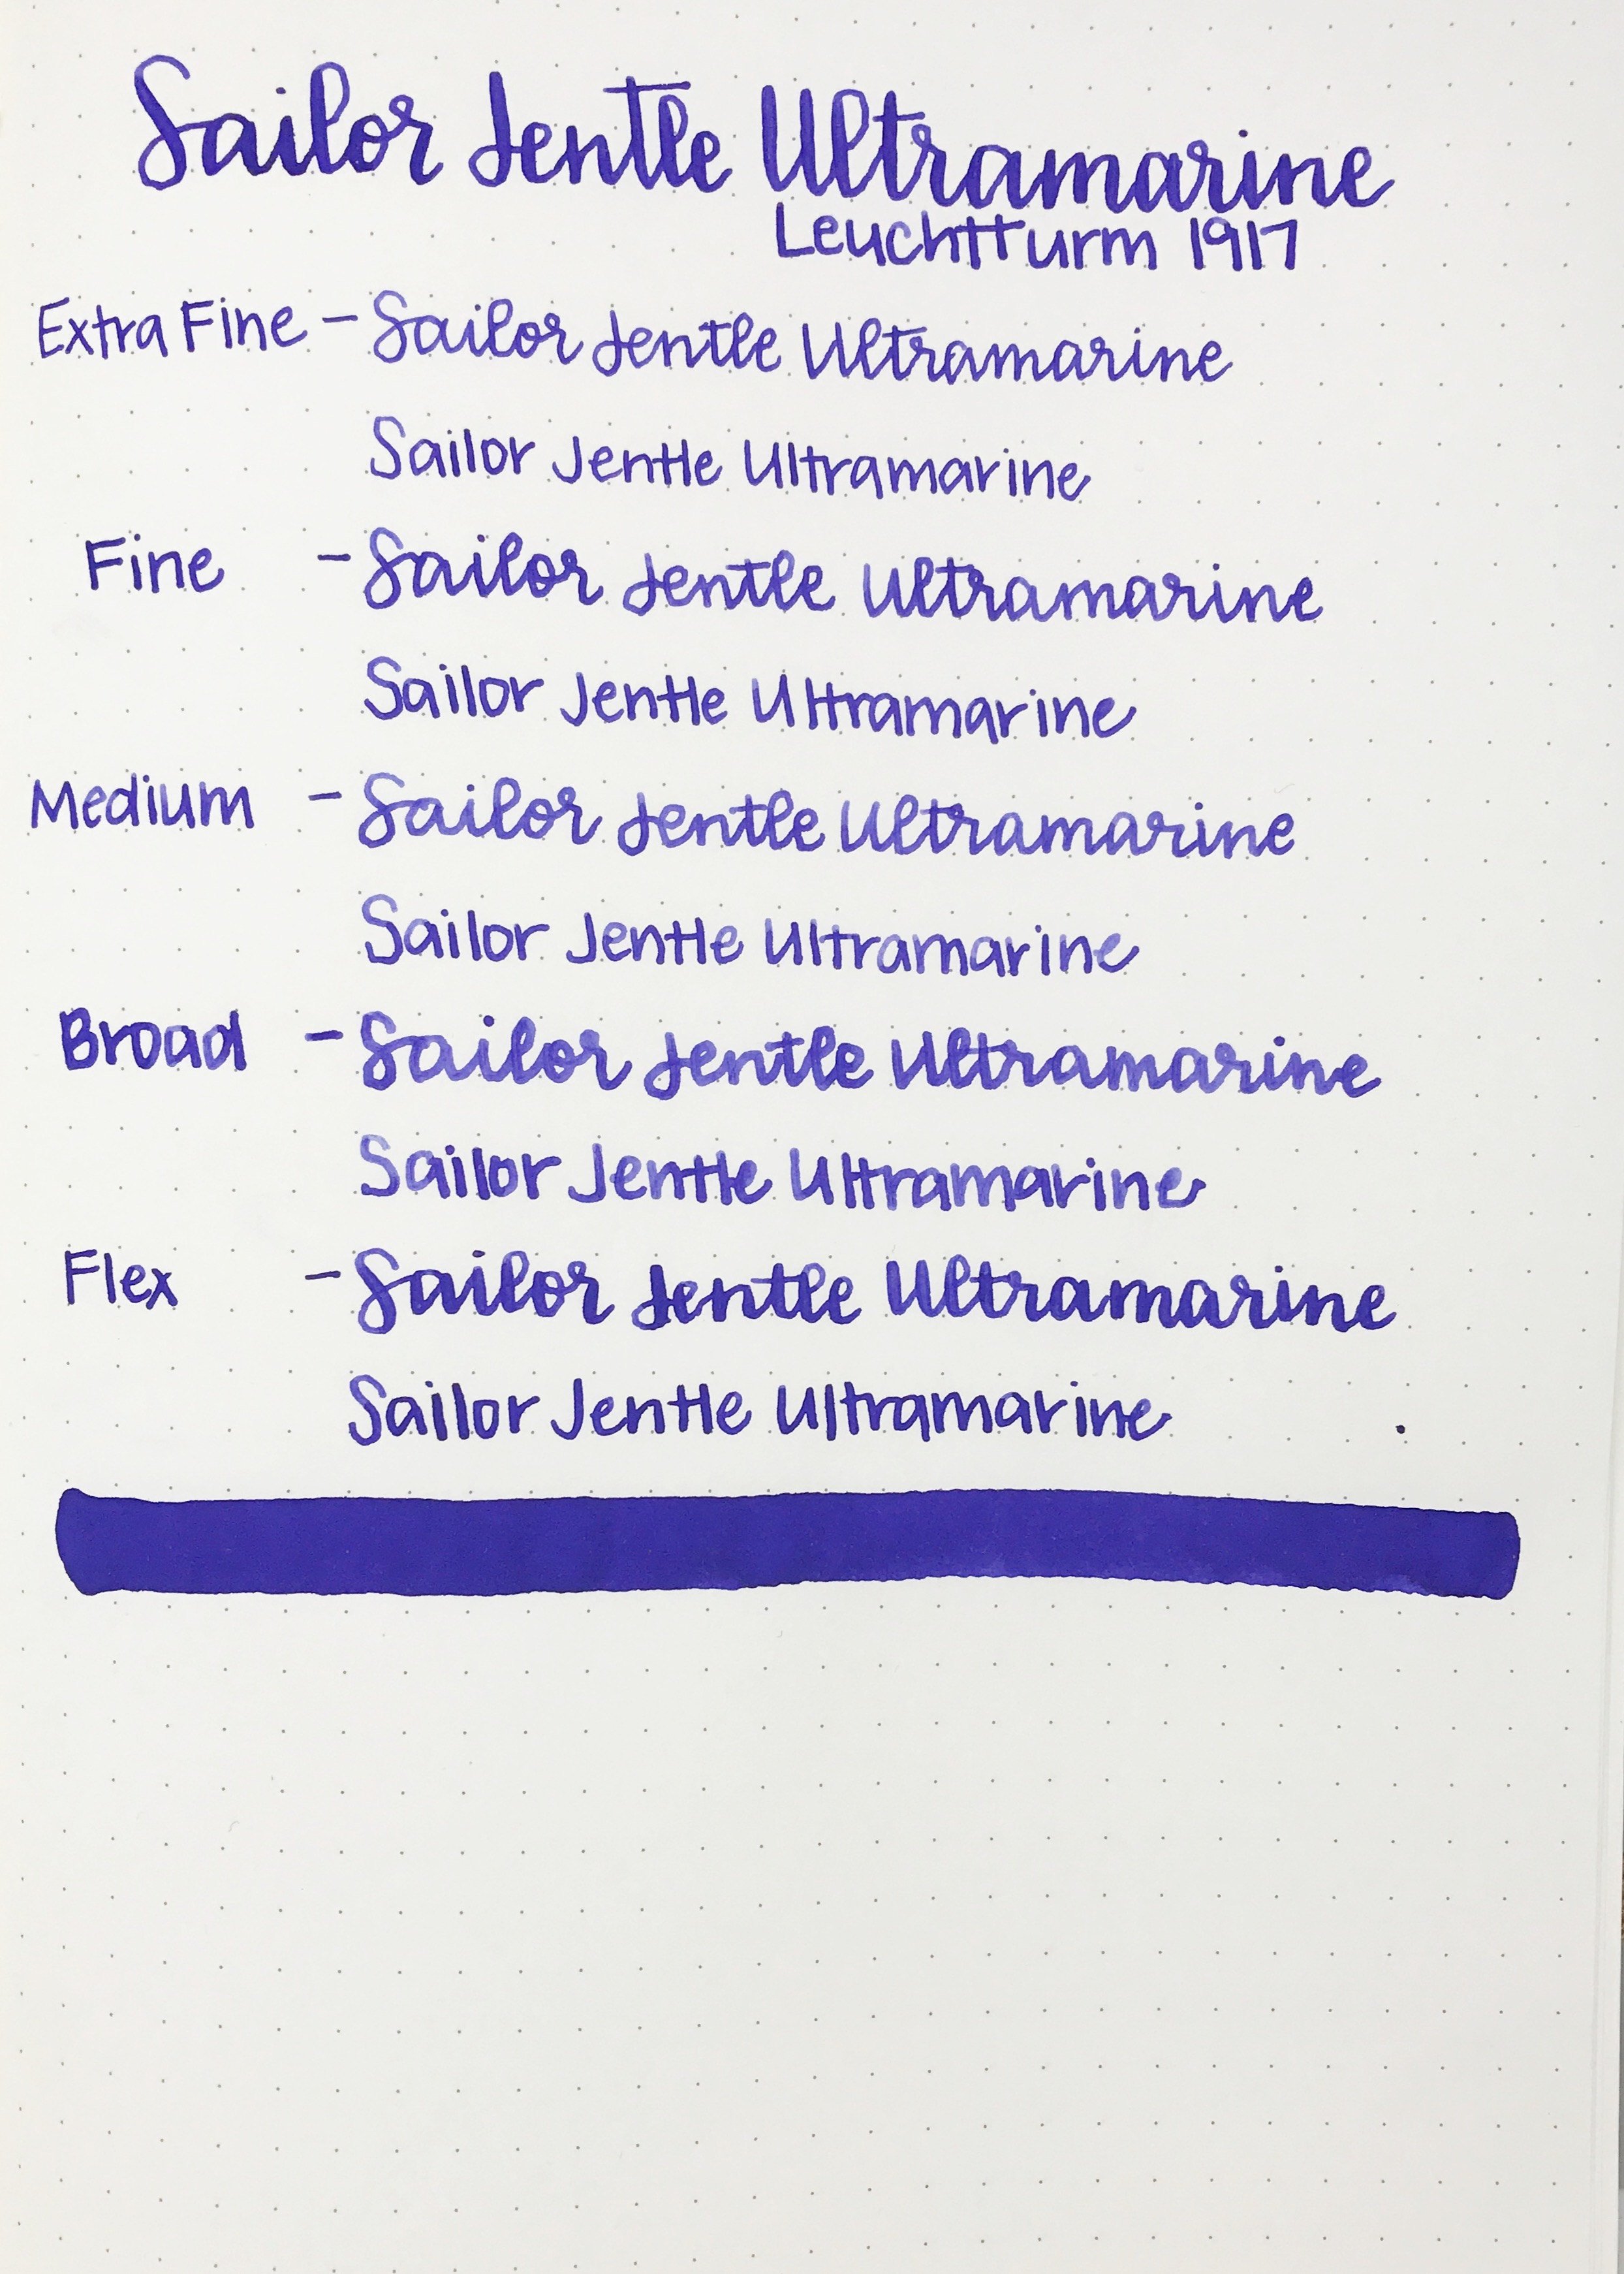 Sailor Jentle Ultramarine
Leuchtturm 1917
Extra Fine - Sailor Jentle Ultramarine
Sailor Jentle Ultramarine
Fine - Sailor Jentle Ultramarine
Sailor Jentle Ultramarine
Medium - Sailor Jentle Ultramarine
Sailor Jentle Ultramarine
Broad - Sailor Jentle Ultramarine
Sailor Jentle Ultramarine
Flex - Sailor Jentle Ultramarine
Sailor Jentle Ultramarine